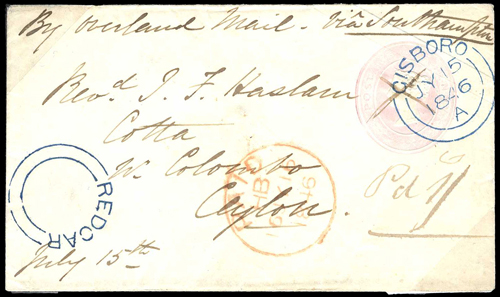 By Overland Mail - via Southampton
GISBORO
JY 15
1846
A
Revd. J. F. Haslam
Cotta
Nr. Colombo
Ceylon.
Pd 1/
REDCAR
July 15th